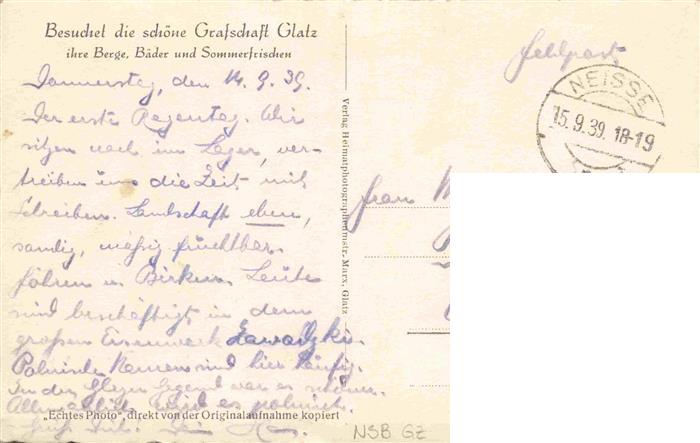 Besuchet die schöne Grafschaft Glatz
ihre Berge, Bäder und Sommerfrischen
Donnerstag, den 14. 9. 39.
Der erste Regentag. Wir
sitzen noch im Lager, ver-
treiben uns die Zeit mit
Schreiben. Landschaft eben,
sandig, mässig fruchtbar.
Föhren u. Birken. Leute
sind beschäftigt in dem
großen Eisenwerk Zawadzki.
Polnische Namen sind hier häufig.
In der Glazer Gegend war es schöner.
Allmählich wird es polnisch.
„Echtes Photo“, direkt von der Originalaufnahme kopiert
Dein
Verlag Heimatphotographenmstr. Marx, Glatz
Feldpost
NEISSE
15.9.39. 18-19
Frau
NSB GZ